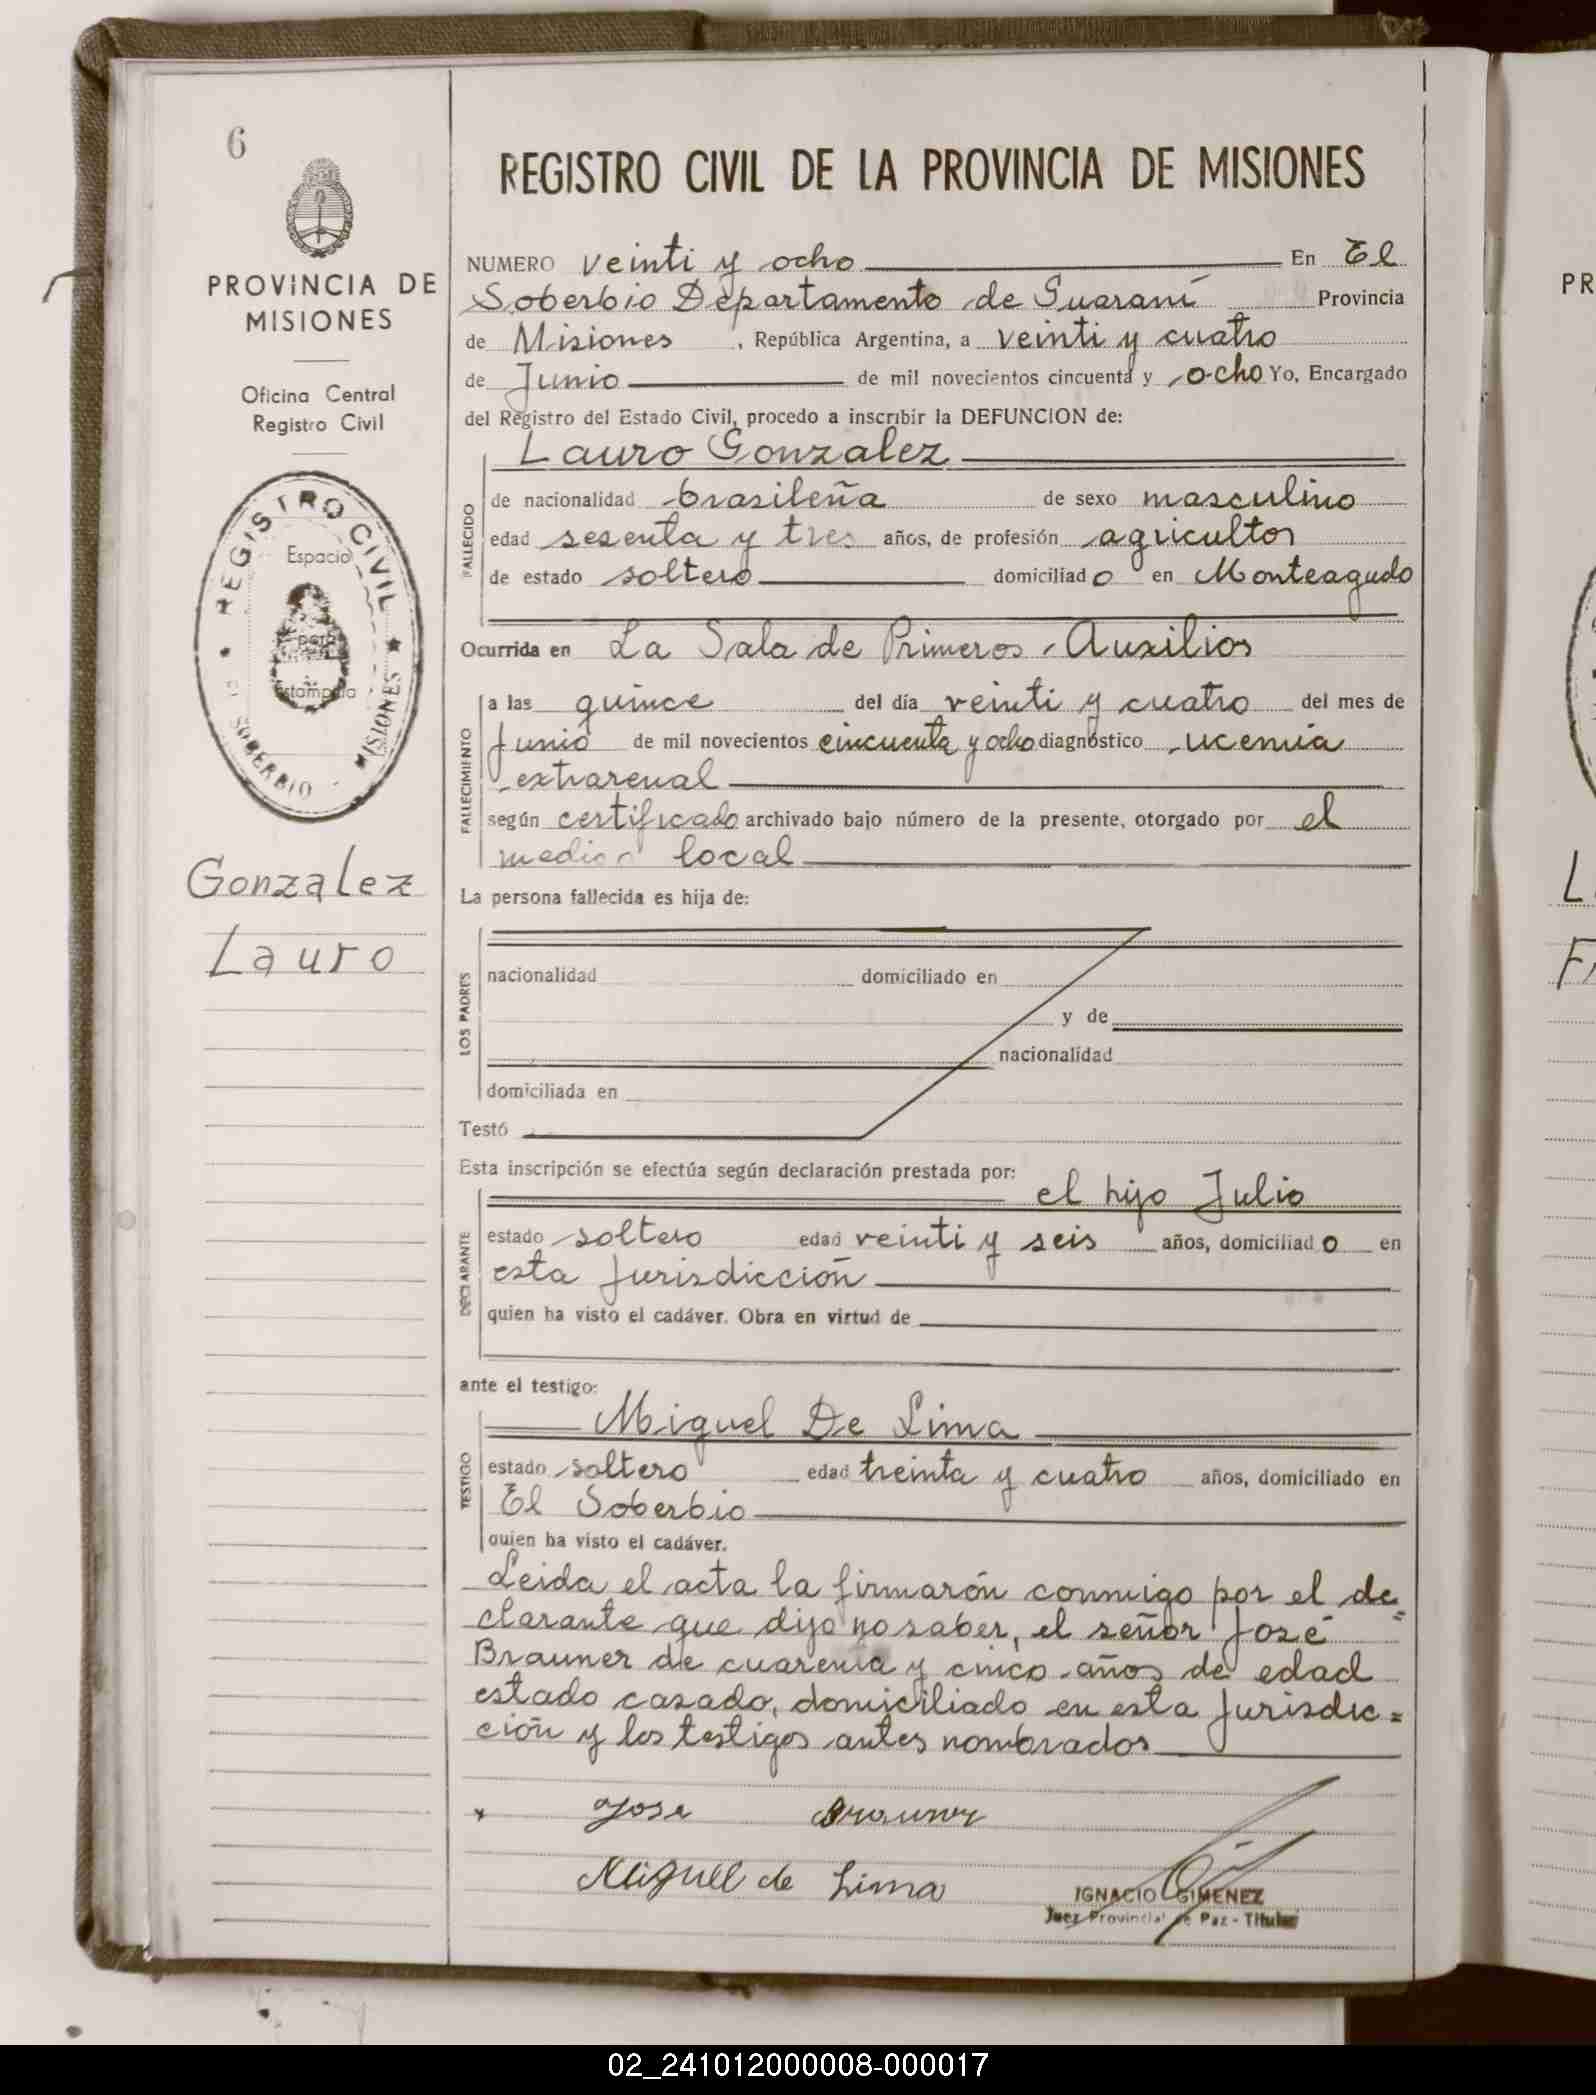 6
PROVINCIA DE
MISIONES
Oficina Central
Registro Civil
REGISTRO CIVIL
Espacio
para
estampilla
EL SOBERBIO - MISIONES
Gonzalez
Lauro
REGISTRO CIVIL DE LA PROVINCIA DE MISIONES
NUMERO veinti y ocho En El
Soberbio Departamento de Guaraní Provincia
de Misiones, República Argentina, a veinti y cuatro
de Junio de mil novecientos cincuenta y ocho Yo, Encargado
del Registro del Estado Civil, procedo a inscribir la DEFUNCION de:
Lauro Gonzalez
FALLECIDO
de nacionalidad brasileña de sexo masculino
edad sesenta y tres años, de profesión agricultor
de estado soltero domiciliado en Monteagudo
Ocurrida en La Sala de Primeros Auxilios
FALLECIMIENTO
a las quince del día veinti y cuatro del mes de
Junio de mil novecientos cincuenta y ocho diagnóstico ucemia
extrarenal
según certificado archivado bajo número de la presente, otorgado por el
medico local
La persona fallecida es hija de:
LOS PADRES
nacionalidad domiciliado en
y de
nacionalidad
domiciliada en
Testó
Esta inscripción se efectúa según declaración prestada por:
el hijo Julio
DECLARANTE
estado soltero edad veinti y seis años, domiciliado en
esta Jurisdicción
quien ha visto el cadáver. Obra en virtud de
ante el testigo:
Miguel De Lima
TESTIGO
estado soltero edad treinta y cuatro años, domiciliado en
El Soberbio
quien ha visto el cadáver.
Leida el acta la firmarón conmigo por el de=
clarante que dijo no saber, el señor José
Brauner de cuarenta y cinco años de edad
estado casado, domiciliado en esta Jurisdic=
ción y los testigos antes nombrados
Jose Brauner
Miguel de Lima
IGNACIO GIMENEZ
Juez Provincial de Paz - Titular
PR
L
02_241012000008-000017